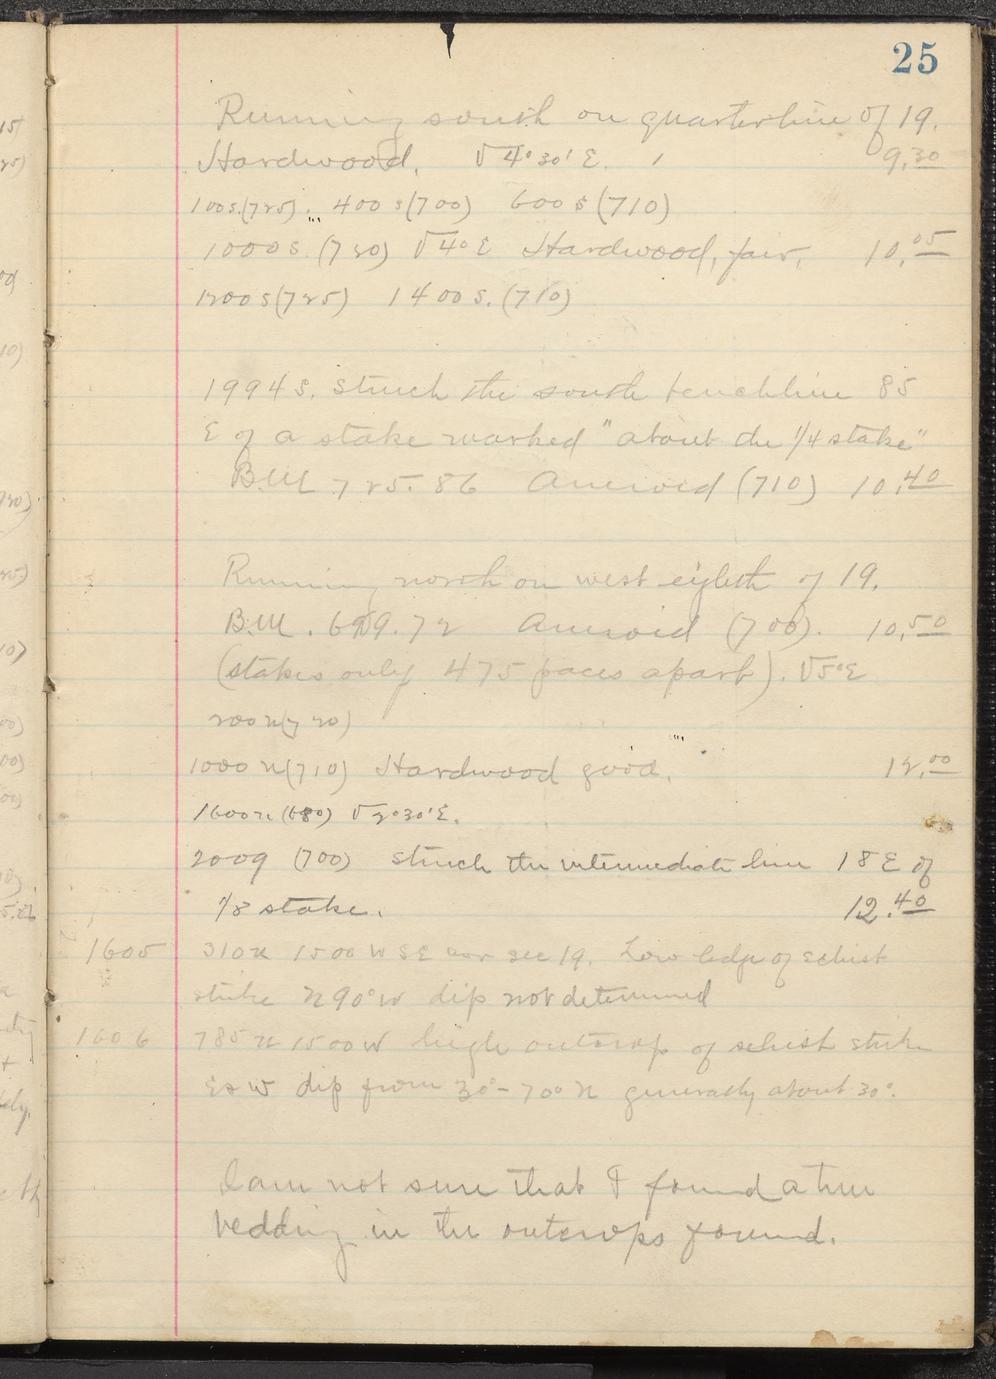 25
Running south on quarterline of 19.
Hardwood, V 4°30' E. 9.30
100 s.(725). 400 s(700) 600 s(710)
1000 s. (730) V 4° E Hardwood, fair, 10.05
1200 s(725) 1400 s. (710)
1994 s. struck the south benchline 85
E of a stake marked "about the 1/4 stake"
B.M. 725.86 Aneroid (710) 10.40
Running north on west eighth of 19.
B.M. 699.72 Aneroid (700). 10.50
(stakes only 475 paces apart). V5°E
200 n(720)
1000 n(710) Hardwood good. 12.00
1600 n (680) V 2°30' E.
2009 (700) struck the intermediate line 18 E of
1/8 stake. 12.40
1605 310 N 1500 W SE cor sec 19. Low ledge of schist
strike N 90° W dip not determined
1606 785 N 1500 W high outcrop of schist strike
E & W dip from 30°-70° N generally about 30°.
I am not sure that I found a true
bedding in the outcrops found.